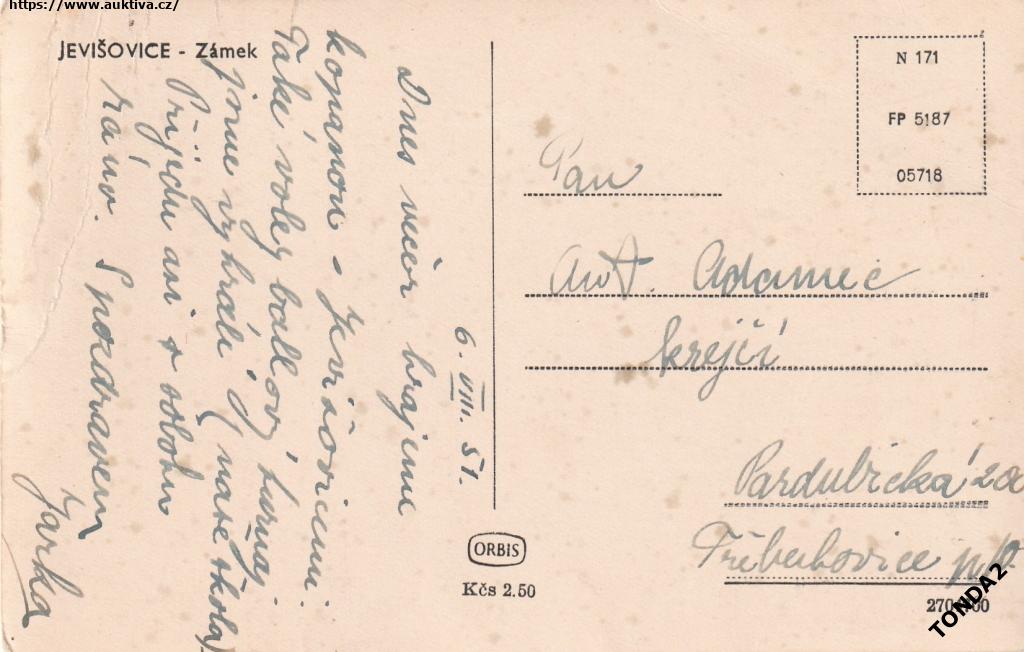 https://www.auktiva.cz/
JEVIŠOVICE - Zámek
6. VIII. 51.
Dnes večer hrajeme
kopanou s Jevišovicemi.
Také volley ballový turnaj
jsme vyhráli (naše škola)
Přijedu asi v sobotu
ráno. S pozdravem
Jarka
N 171
FP 5187
05718
Pan
Ant. Adamec
krejčí
Pardubická 200
Třebechovice p/O.
ORBIS
Kčs 2.50
TONDA2